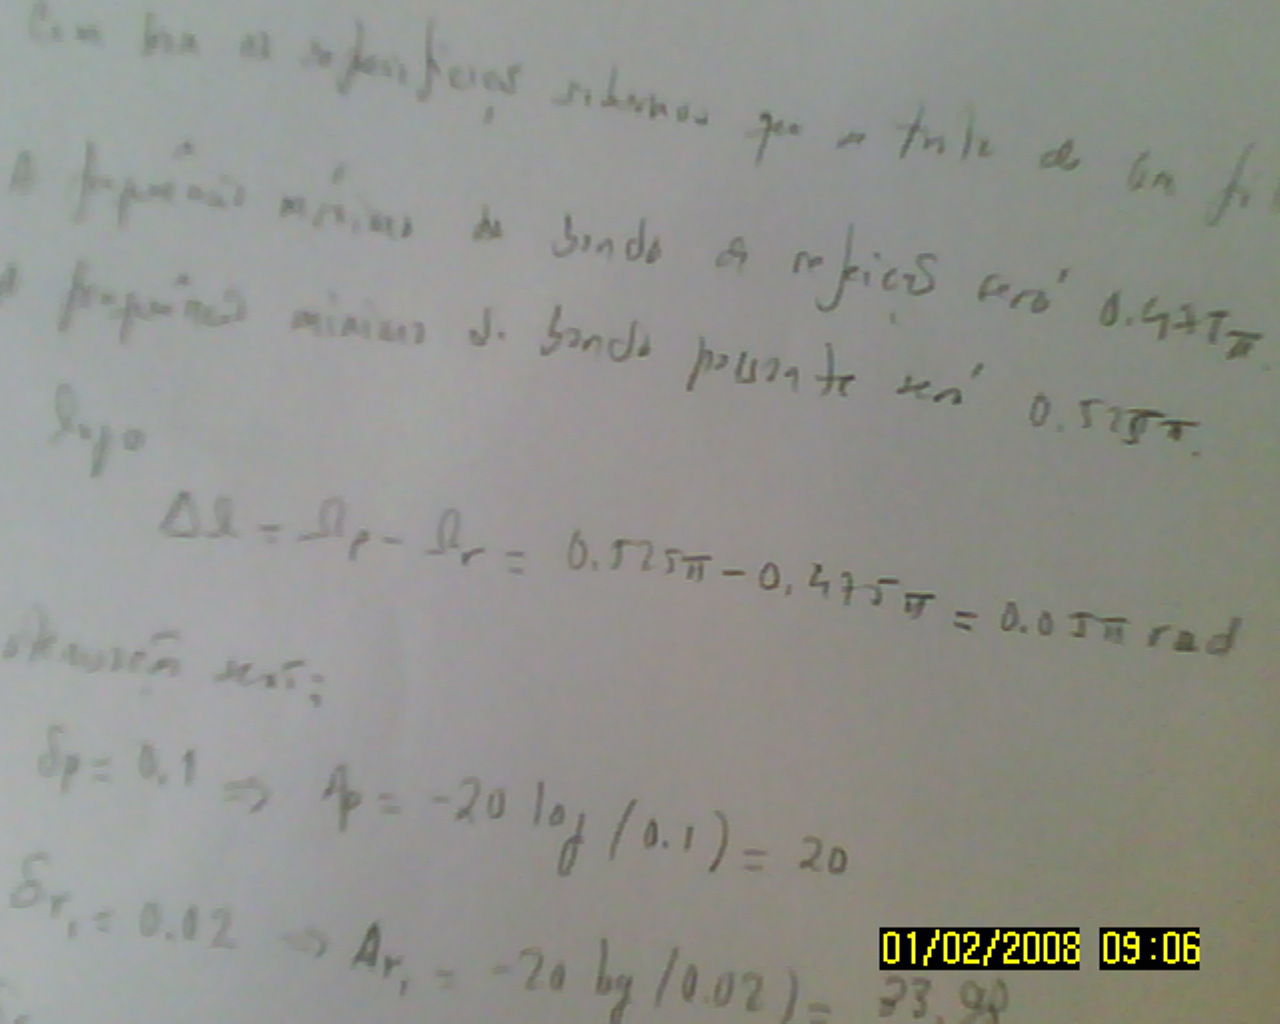 Com base as especificações sabemos que se trata de um fi
A frequência máxima da banda de rejeição será 0.475π.
A frequência mínima da banda passante será 0.525π.
logo
ΔΩ = Ωp - Ωr = 0.525π - 0.475π = 0.05π rad
será:
δp = 0.1 ⇒ Ap = -20 log (0.1) = 20
δr₁ = 0.02 ⇒ Ar₁ = -20 log (0.02) = 33.98
01/02/2008 09:06